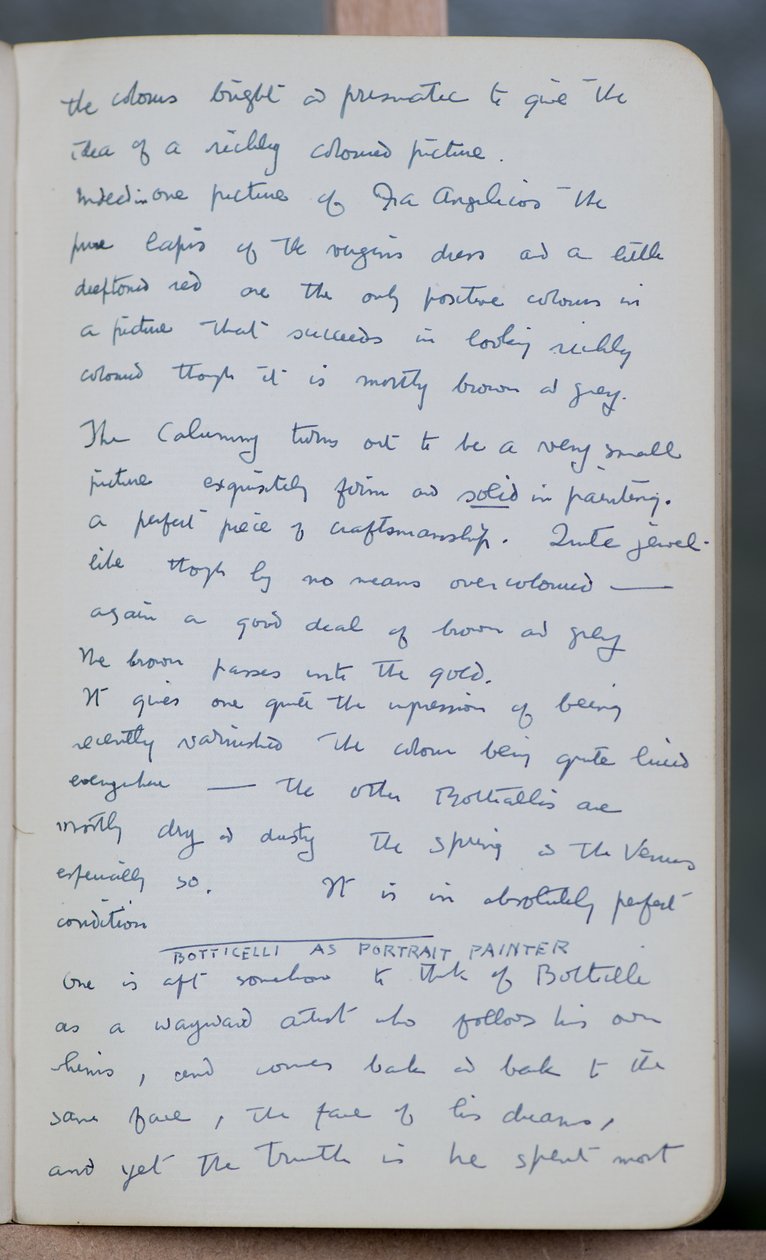 the colours bright ad prismatic to give the
idea of a richly coloured picture.
Indeed in one picture of Fra Angelicos the
pure lapis of the virgins dress ad a little
deeptoned red are the only positive colours in
a picture that succeeds in looking richly
coloured though it is mostly brown ad grey.
The Calumny turns out to be a very small
picture exquisitely firm ad solid in painting.
a perfect piece of craftsmanship. Quite jewel-
like though by no means overcoloured —
again a good deal of brown ad grey
The brown passes into the gold.
It gives one quite the impression of being
recently varnished the colour being quite
everywhere — the other Botticellis are
mostly dry ad dusty the Spring ad the Venus
especially so. It is in absolutely perfect
condition
BOTTICELLI AS PORTRAIT PAINTER
One is apt somehow to think of Botticelli
as a wayward artist who follows his own
whims, and comes back ad back to the
same face, the face of his dreams,
and yet the truth is he spent most